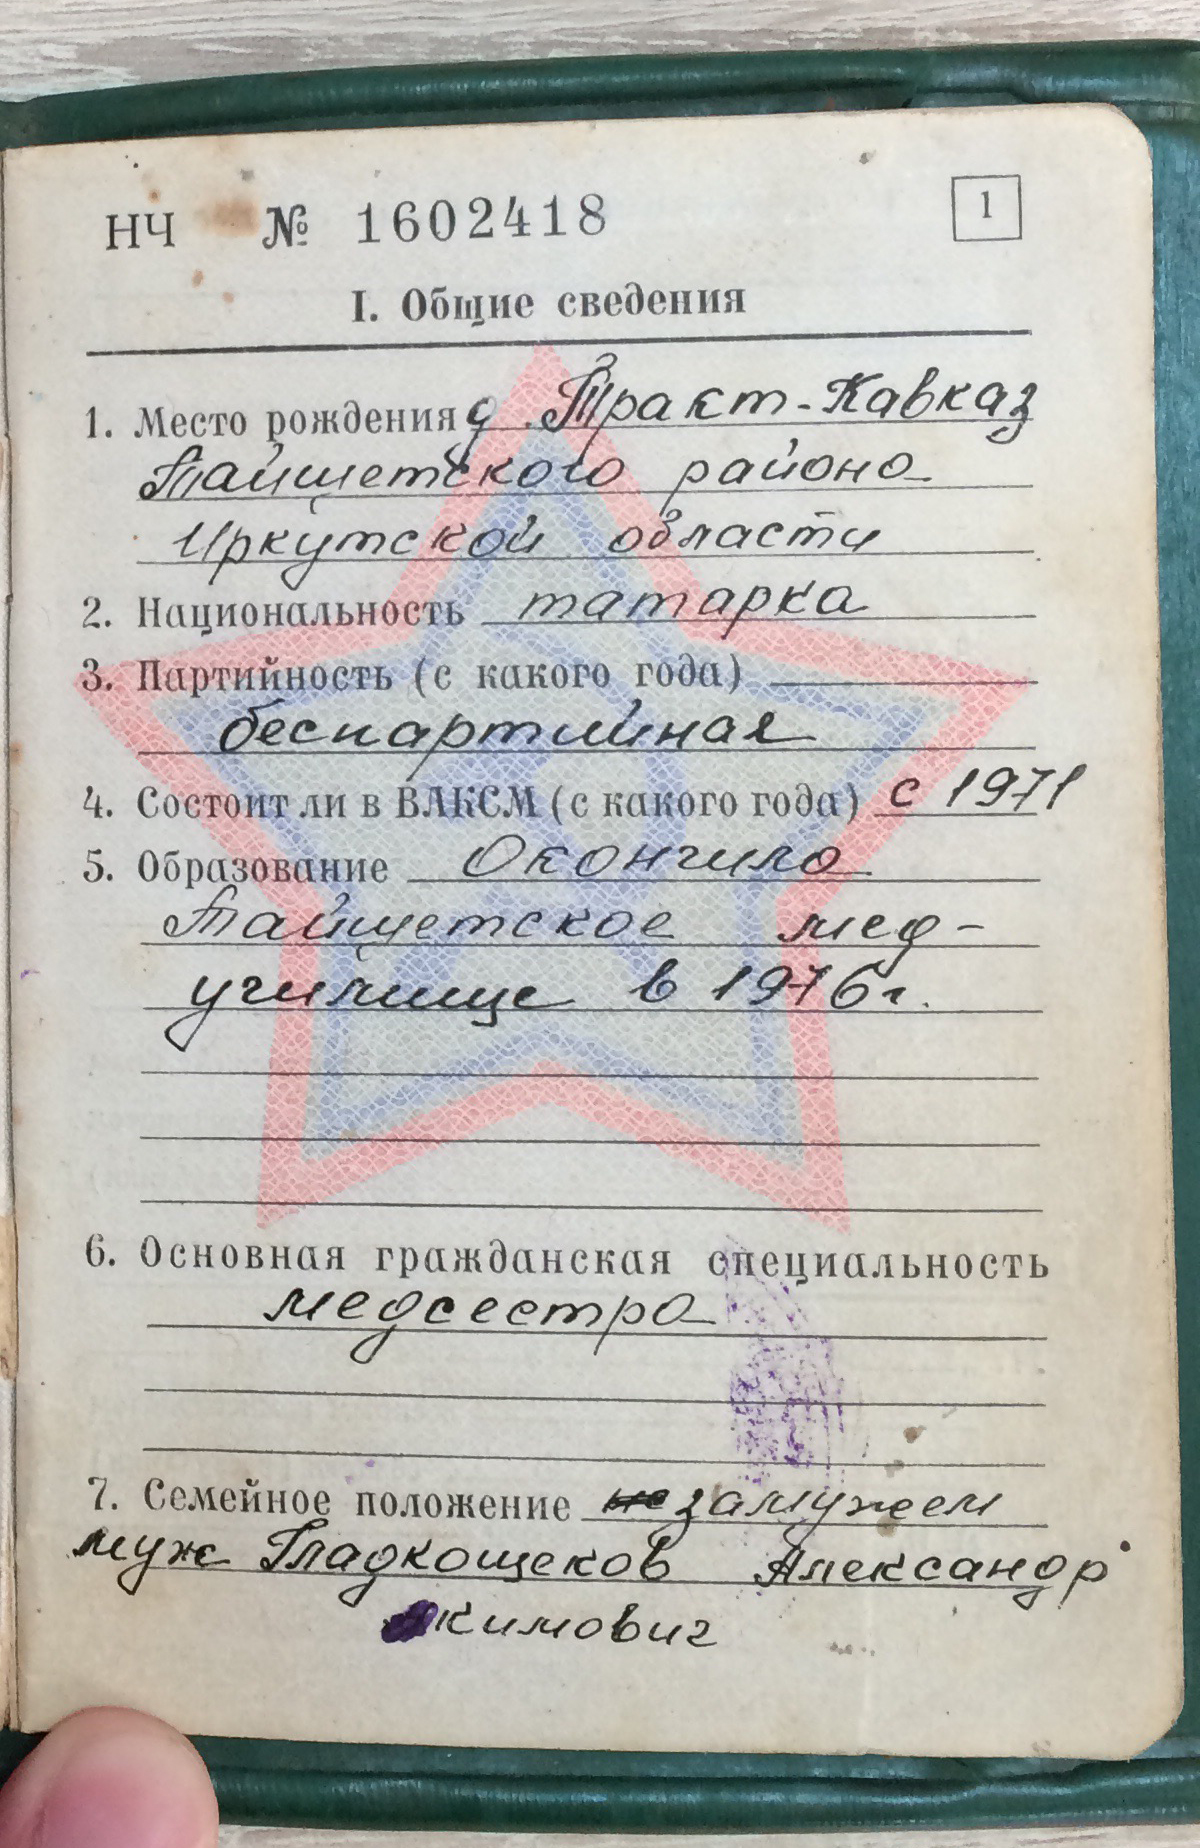 НЧ № 1602418
1
I. Общие сведения
1. Место рождения д. Тракт-Кавказ
Тайшетского района
Иркутской области
2. Национальность татарка
3. Партийность (с какого года)
беспартийная
4. Состоит ли в ВЛКСМ (с какого года) с 1971
5. Образование Окончила
Тайшетское мед-
училище в 1976г.
6. Основная гражданская специальность
медсестра
7. Семейное положение не замужем
муж Гладкощеков Александр
Акимович